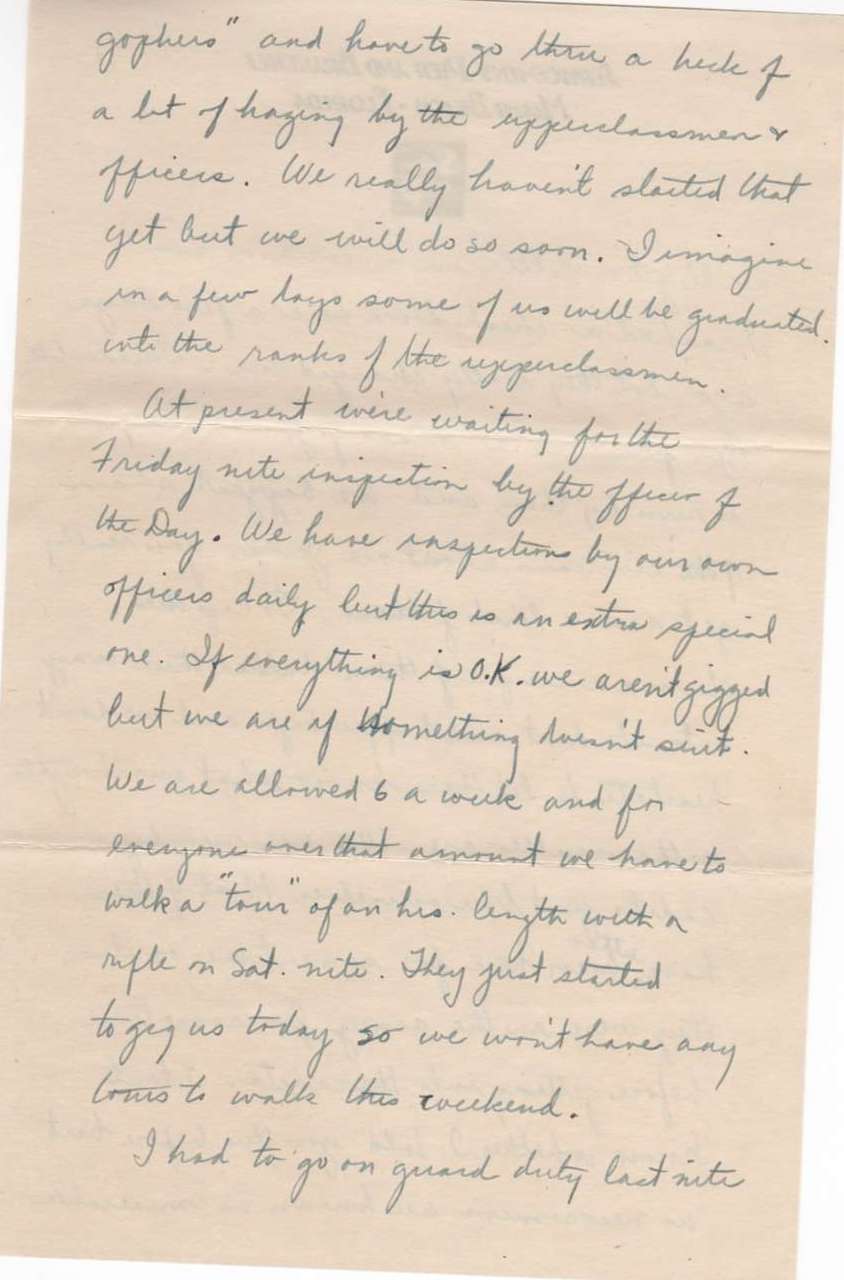 gophers" and have to go thru a heck of
a lot of hazing by the upperclassmen &
officers. We really haven't started that
yet but we will do so soon. I imagine
in a few days some of us will be graduated
into the ranks of the upperclassmen.
At present we're waiting for the
Friday nite inspection by the officer of
the Day. We have inspections by our own
officers daily but this is an extra special
one. If everything is O.K. we aren't gigged
but we are if something doesn't suit.
We are allowed 6 a week and for
everyone over that amount we have to
walk a "tour" of an hrs. length with a
rifle on Sat. nite. They just started
to gig us today so we won't have any
tours to walk this weekend.
I had to go on guard duty last nite